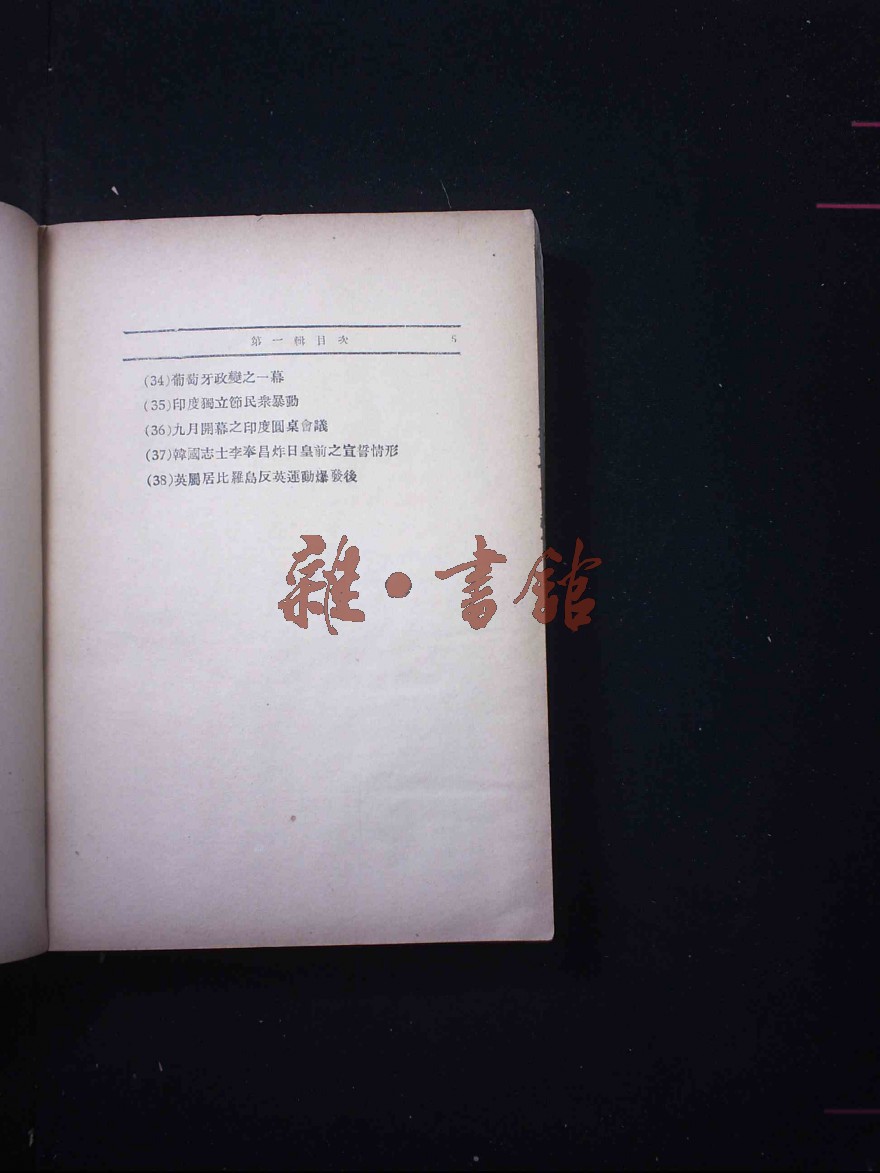 第一輯目次 5
(34)葡萄牙政變之一幕
(35)印度獨立節民衆暴動
(36)九月開幕之印度圓桌會議
(37)韓國志士李奉昌炸日皇前之宣誓情形
(38)英屬居比羅島反英運動爆發後
雜·書館